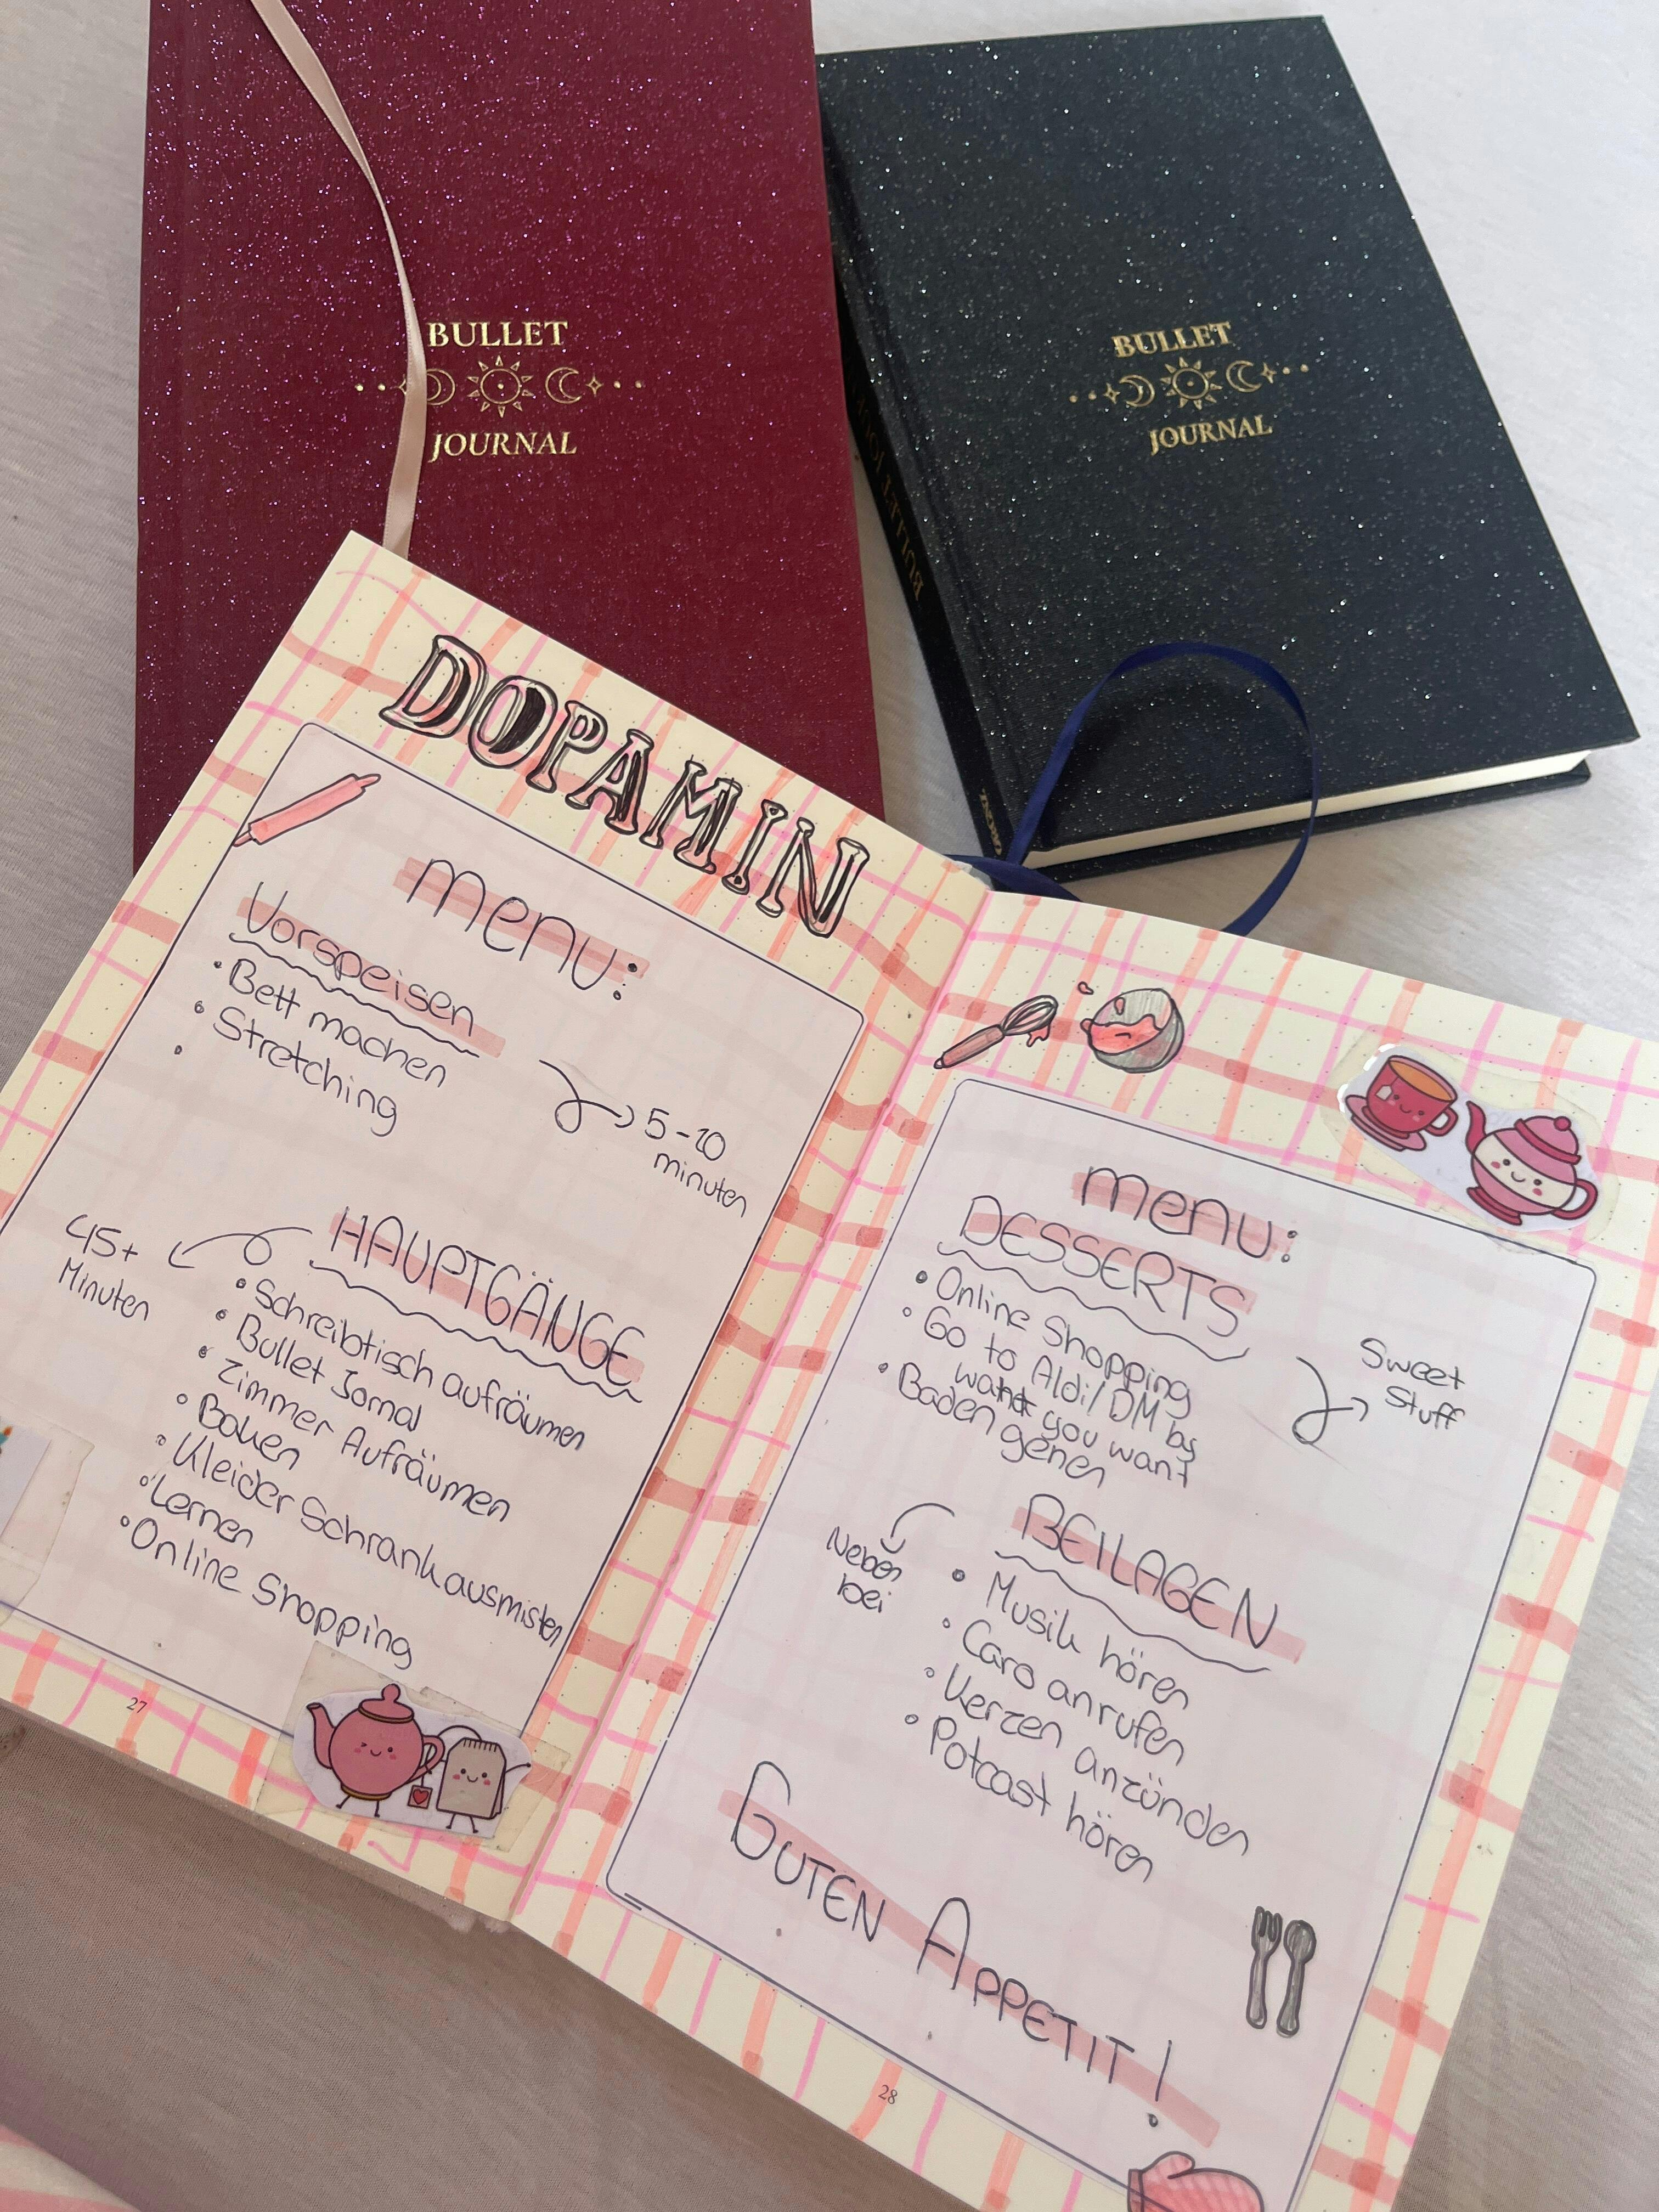 BULLET
JOURNAL
BULLET
JOURNAL
DOPAMIN
menu:
Vorspeisen
• Bett machen
• Stretching
•
5-10
minuten
HAUPTGÄNGE
45+
Minuten
• Schreibtisch aufräumen
• Bullet Jornal
• Zimmer Aufräumen
• Baken
• Kleider Schrank ausmisten
• Lernen
• Online Shopping
27
menu:
DESSERTS
• Online Shopping
• Go to Aldi/DM by
you want
• Baden gehen
Sweet
Stuff
BEILAGEN
Neben
bei
• Musik hören
• Caro anrufen
• Kerzen anzünden
• Potcast hören
GUTEN APPETIT!
28